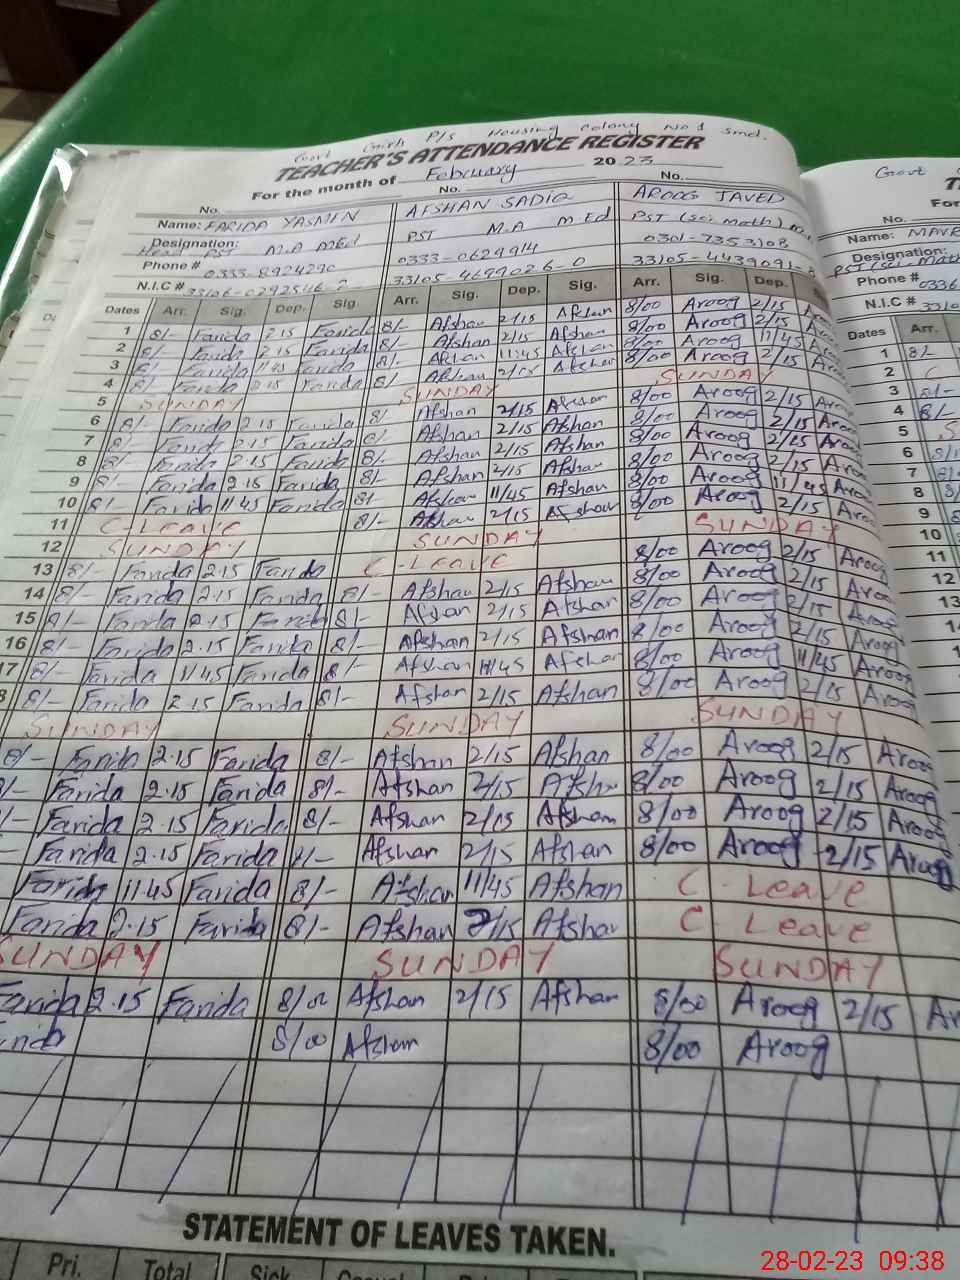 Govt Girls P/S Housing Colony No 1 Smd.
TEACHER'S ATTENDANCE REGISTER
For the month of February 2023
No. No. No.
Name: FARIDA YASMEN AFSHAN SADIQ AROOG JAVED
Designation: Head PST M.A M.Ed PST M.A M.Ed PST (sci math)
Phone # 0333-8924290 0333-0629914 0301-7353108
N.I.C # 33105-4699026-0
Dates Arr. Sig. Dep. Sig. Arr. Sig. Dep. Sig. Arr. Sig. Dep.
1 8/- Farida 2.15 Farida 8/- Afshan 2/15 Afshan 8/00 Aroog 2/15
2 8/- Farida 2.15 Farida 8/- Afshan 2/15 Afshan 8/00 Aroog 2/15
3 8/- Farida 11.45 Farida 8/- Afshan 11:45 Afshan 8/00 Aroog 11/45
4 8/- Farida 2.15 Farida 8/- Afshan 2/15 Afshan 8/00 Aroog 2/15
5 SUNDAY SUNDAY SUNDAY
6 8/- Farida 2.15 Farida 8/- Afshan 2/15 Afshan 8/00 Aroog 2/15
7 8/- Farida 2.15 Farida 8/- Afshan 2/15 Afshan 8/00 Aroog 2/15 Aroog
8 8/- Farida 2.15 Farida 8/- Afshan 2/15 Afshan 8/00 Aroog 2/15 Aroog
9 8/- Farida 2.15 Farida 8/- Afshan 2/15 Afshan 8/00 Aroog 2/15
10 8/- Farida 11.45 Farida 8/- Afshan 11/45 Afshan 8/00 Aroog 11/45
11 C-LEAVE 8/- Afshan 2/15 Afshan 8/00 Aroog 2/15
12 SUNDAY SUNDAY SUNDAY
13 8/- Farida 2.15 Farida C-LEAVE 8/00 Aroog 2/15 Aroog
14 8/- Farida 2.15 Farida 8/- Afshan 2/15 Afshan 8/00 Aroog 2/15 Aroog
15 8/- Farida 2.15 Farida 8/- Afshan 2/15 Afshan 8/00 Aroog 2/15 Aroog
16 8/- Farida 2.15 Farida 8/- Afshan 2/15 Afshan 8/00 Aroog 2/15 Aroog
17 8/- Farida 11/45 Farida 8/- Afshan 11/45 Afshan 8/00 Aroog 11/45 Aroog
8 8/- Farida 2.15 Farida 8/- Afshan 2/15 Afshan 8/00 Aroog 2/15 Aroog
SUNDAY SUNDAY SUNDAY
8/- Farida 2.15 Farida 8/- Afshan 2/15 Afshan 8/00 Aroog 2/15 Aroog
Farida 2.15 Farida 8/- Afshan 2/15 Afshan 8/00 Aroog 2/15 Aroog
Farida 2.15 Farida 8/- Afshan 2/15 Afshan 8/00 Aroog 2/15 Aroog
Farida 2.15 Farida 8/- Afshan 2/15 Afshan 8/00 Aroog 2/15 Aroog
Farida 11.45 Farida 8/- Afshan 11/45 Afshan C-Leave
Farida 2.15 Farida 8/- Afshan 2/15 Afshan C-Leave
SUNDAY SUNDAY SUNDAY
Farida 2.15 Farida 8/00 Afshan 2/15 Afshan 8/00 Aroog 2/15
8/00 Afshan 8/00 Aroog
STATEMENT OF LEAVES TAKEN.
Pri. Total Sick
Govt
No.
Name:
Designation:
PST (sci math)
Phone # 0336
N.I.C #
Dates Arr.
1 8/-
2 C
3 8/-
4 8/-
5 S
6
7
8
9
10
11
12
28-02-23 09:38